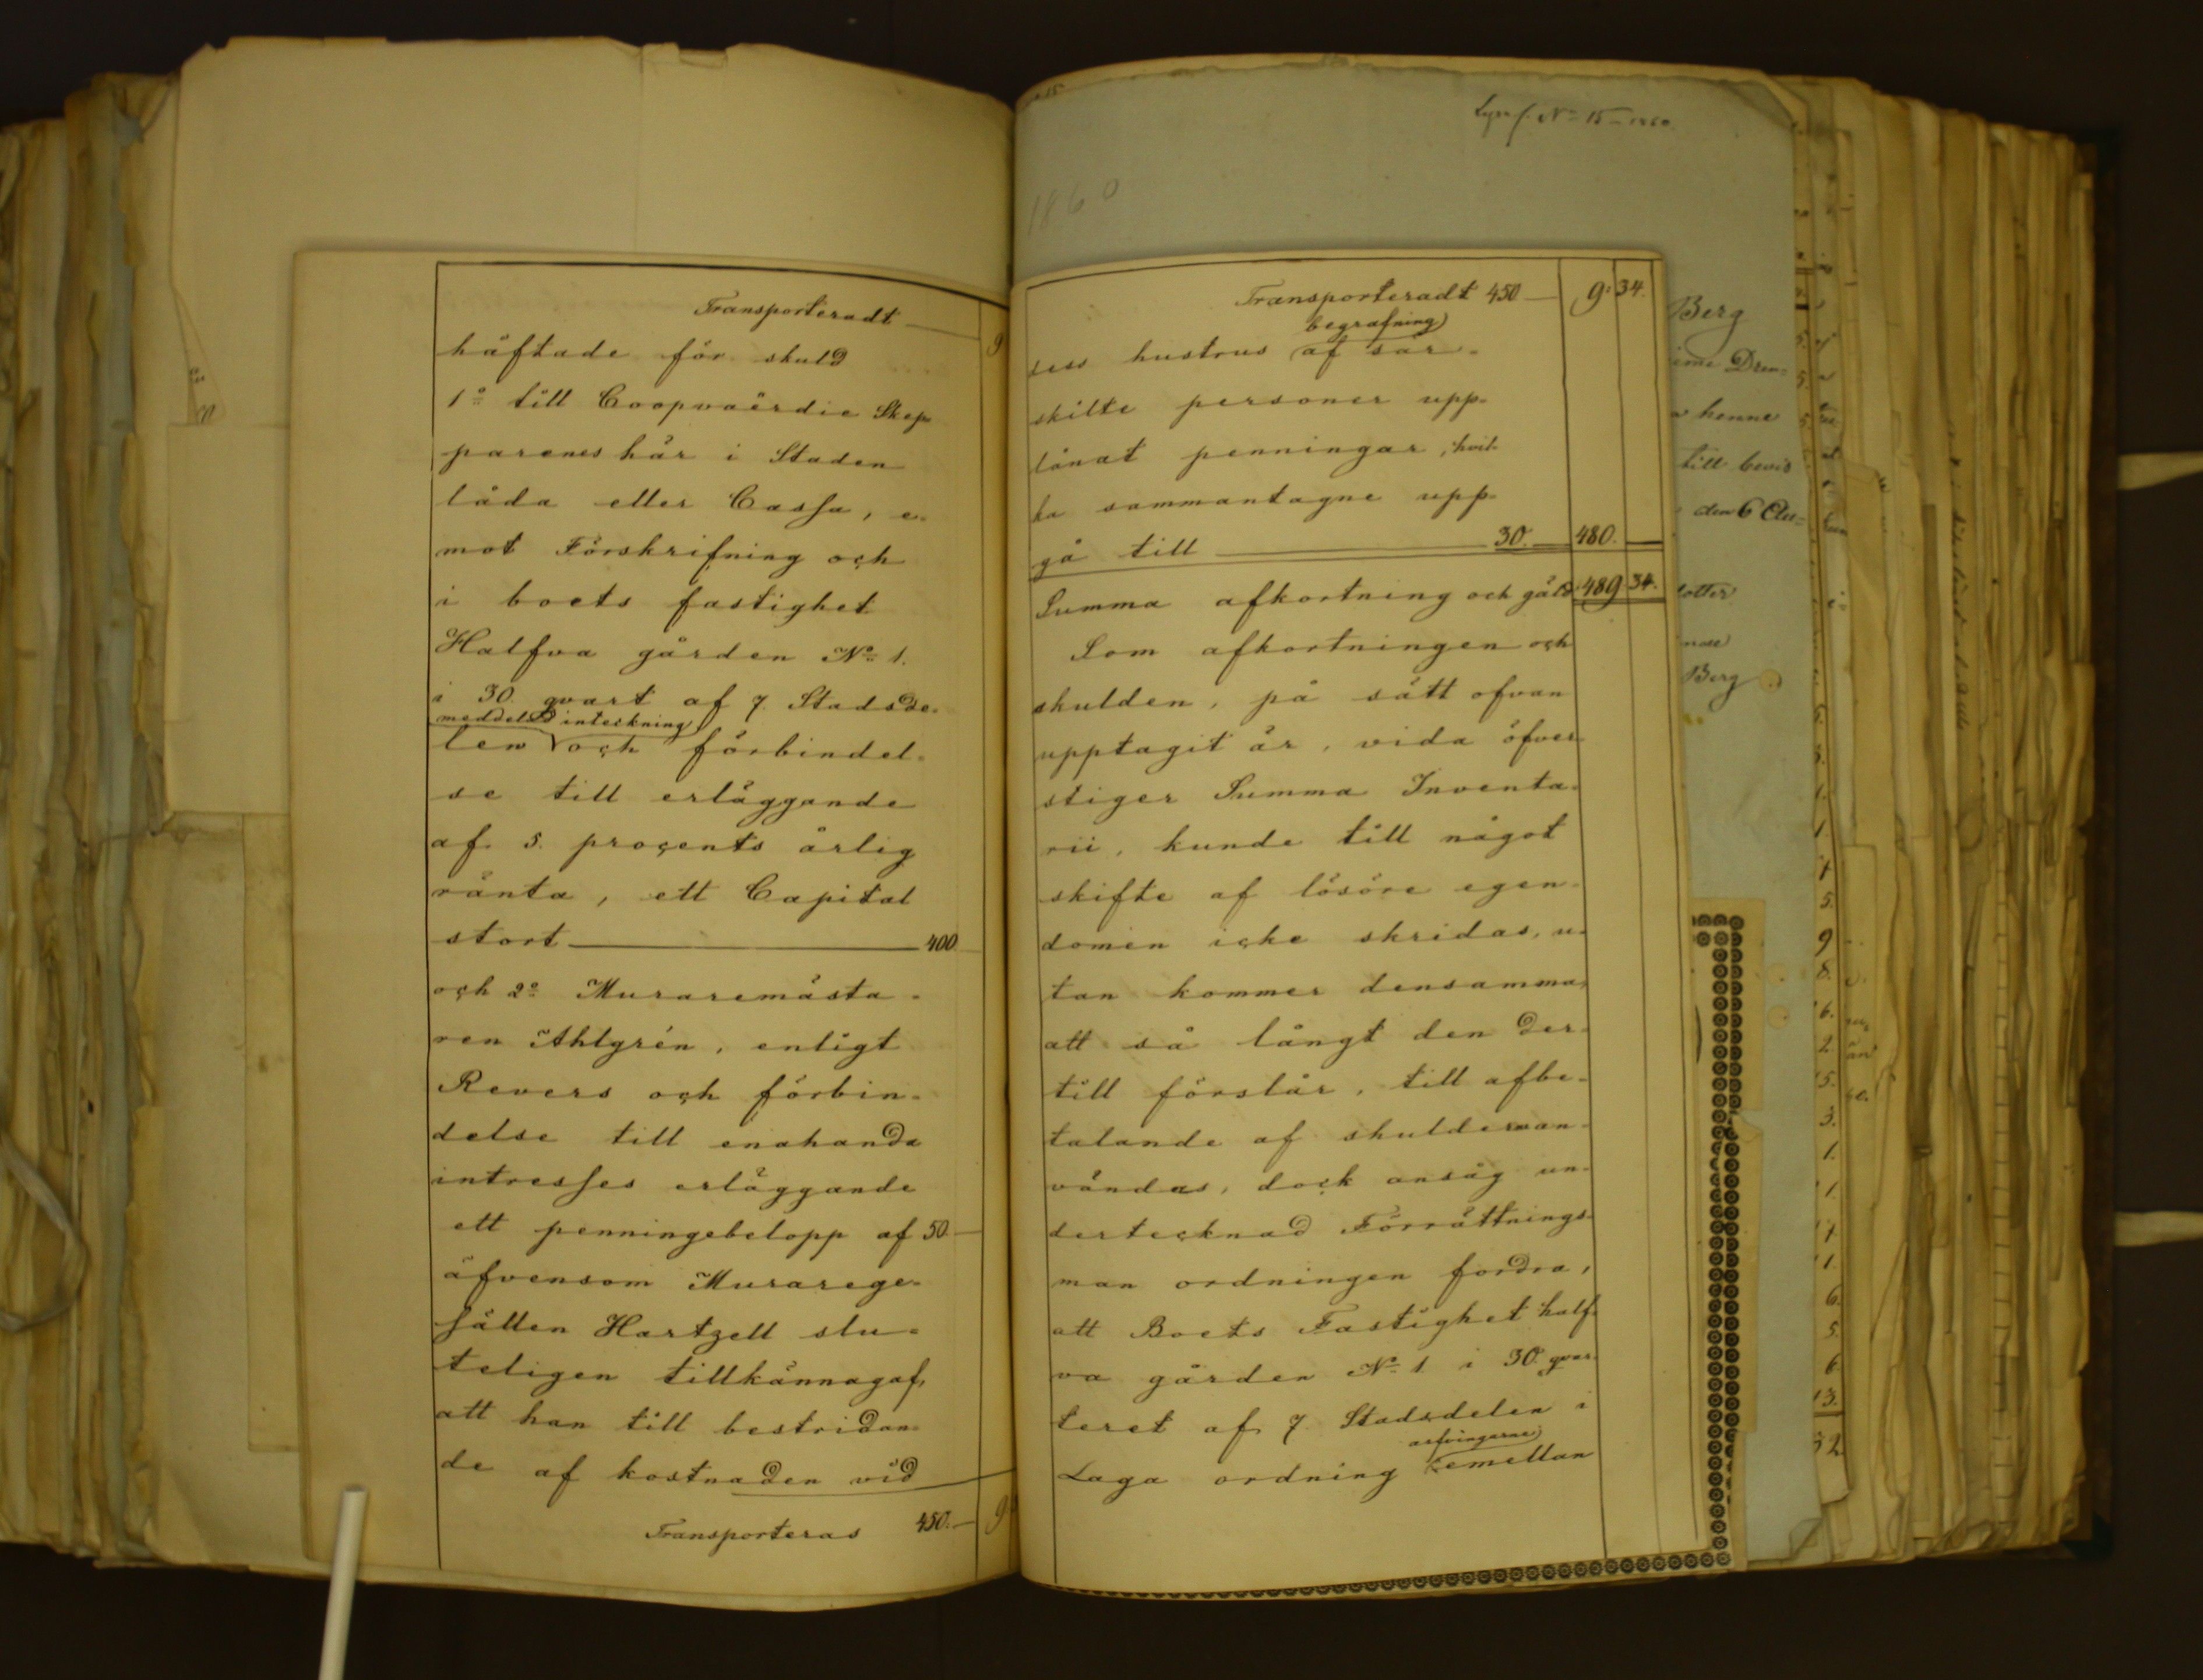 Transporteradt 9
häftade för skuld
1o till Coopvaërdie Skep
parenes här i Staden
låda eller Cassa, e-
mot Förskrifning och
i boets fastighet
Halfva gården No 1.
i 30. qvart af 7 Stadsde-
meddelad inteckning
len och förbindel-
se till erläggande
af 5. procents årlig
ränta, ett Capital
stort 400
och 2o Muraremästa-
ren Ahlgrén, enligt
Revers och förbin-
delse till enahanda
intresses erläggande
ett penningebelopp af 50 —
äfvensom Murarege-
sällen Hartzell slu-
teligen tillkännagaf,
att han till bestridan-
de af kostnaden vid
Transporteras 450. — 9
Lysn f. No 15 — 1860.
1860
Transporteradt 450 — 9: 34.
begrafning
dess hustrus af sär-
skilte personer upp-
lånat penningar, hvil-
ka sammantagne upp-
gå till 30. — 480. —
Summa afkortning och gäld 489 34.
Som afkortningen och
skulden, på sätt ofvan
upptagit är, vida öfver-
stiger Summa Inventa-
rii, kunde till något
skifte af lösöre egen-
domen icke skridas, u-
tan kommer densamma,
att så långt den der-
till förslår, till afbe-
talande af skulden an-
vändas, dock ansåg un-
dertecknad Förrättnings-
man ordningen fordra,
att Boets Fastighet half-
va gården No 1 i 30 qvar-
teret af 7 Stadsdelen i
arfvingarne
Laga ordning emellan
Berg
henne
till bevis
den 6 Au-
dotter
Berg